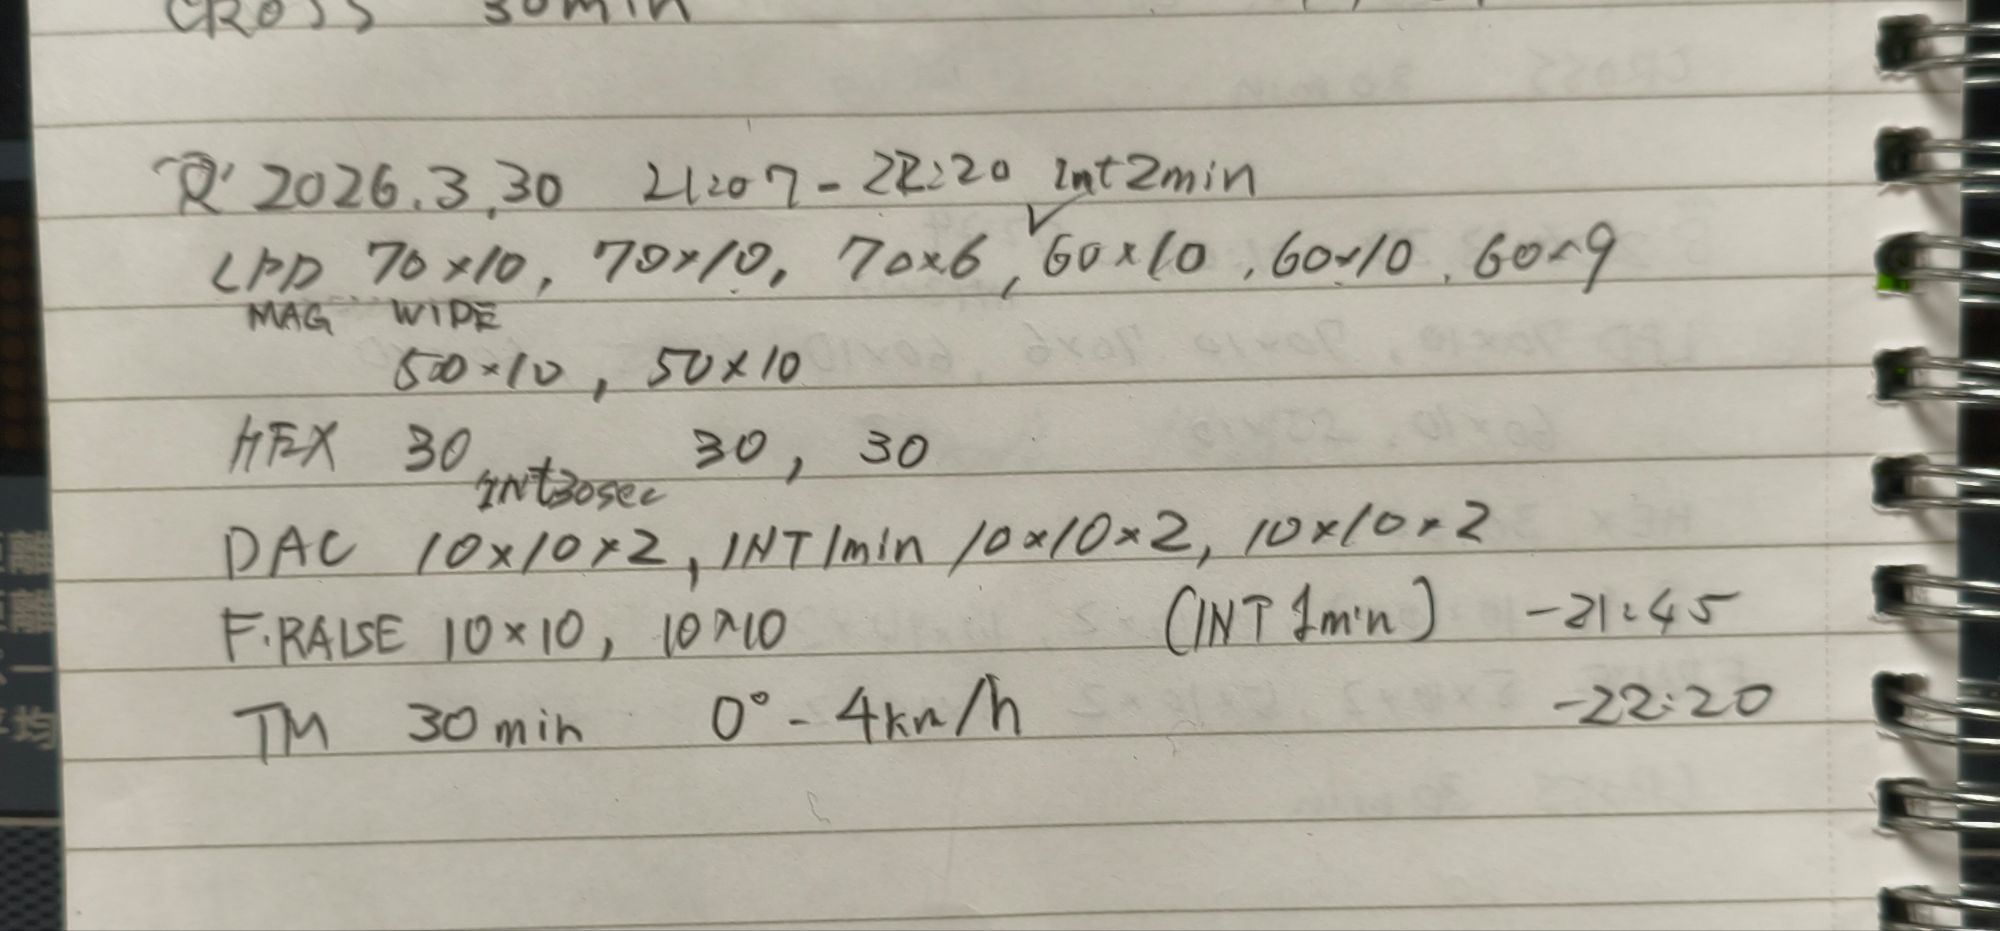 CROSS 30min
2026.3.30 21:07-22:20 Int2min
LPD 70×10, 70×10, 70×6, ✓60×10, 60×10, 60×9
MAG WIDE
50×10, 50×10
HEX 30 30, 30
INT30sec
DAC 10×10×2, INT1min 10×10×2, 10×10×2
F.RAISE 10×10, 10×10 (INT 1min) -21:45
TM 30min 0°-4km/h -22:20
距離
距離
平均